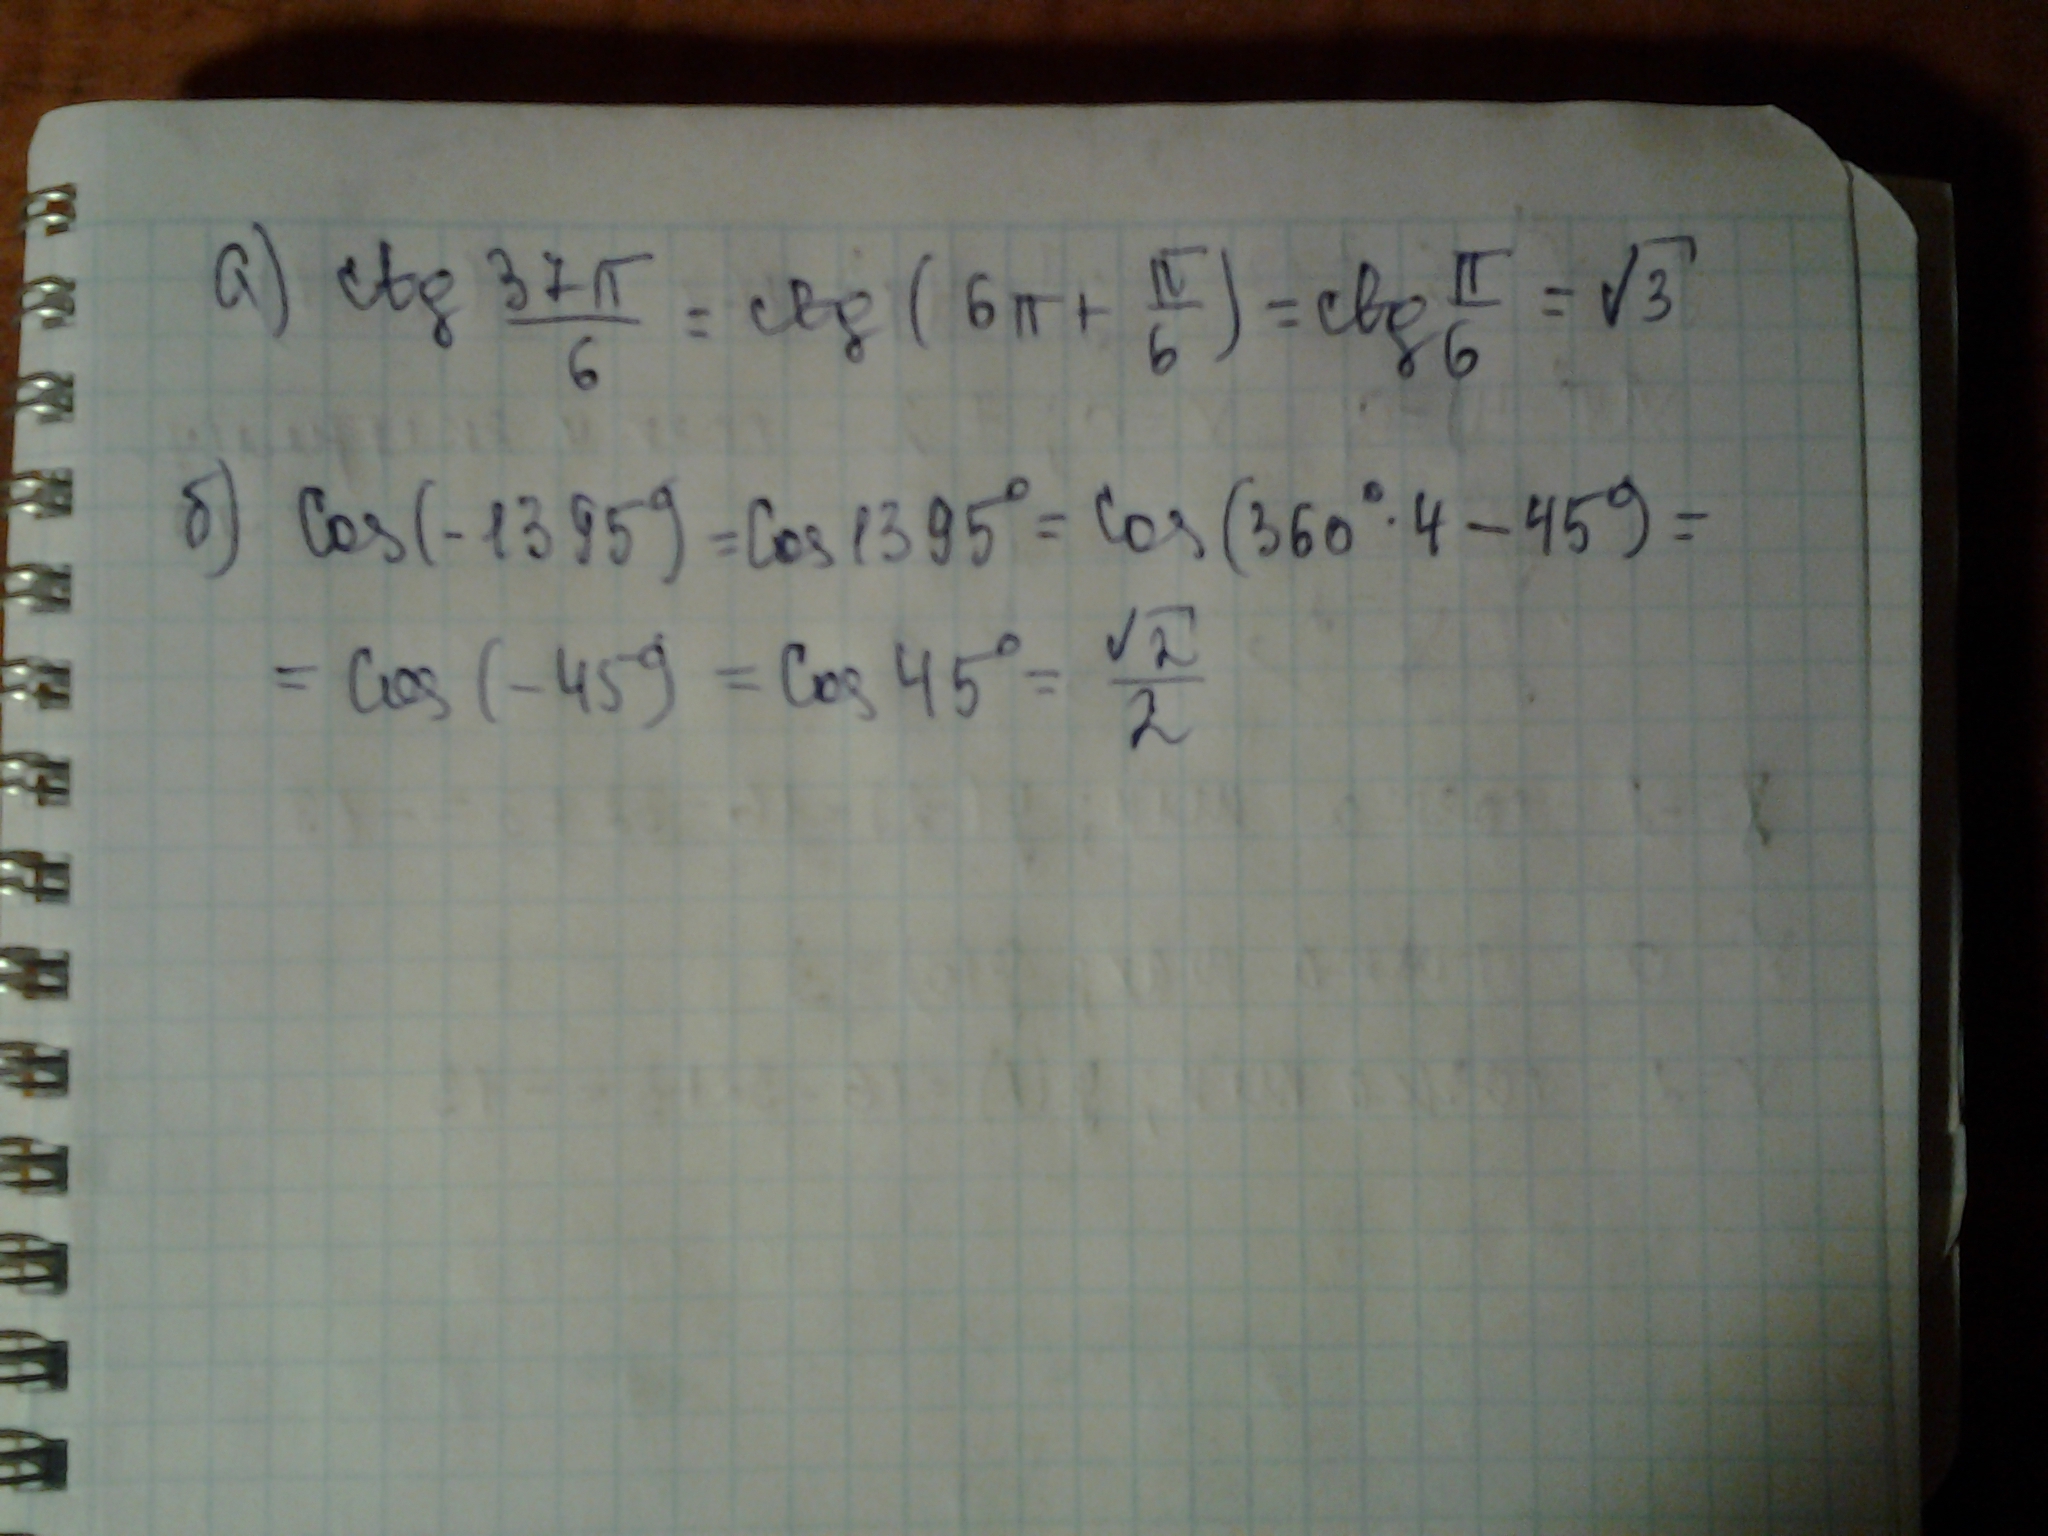 а) ctg 37π/6 = ctg (6π + π/6) = ctg π/6 = √3
б) Cos(-1395°) = Cos 1395° = Cos(360°·4 - 45°) =
= Cos(-45°) = Cos 45° = √2/2